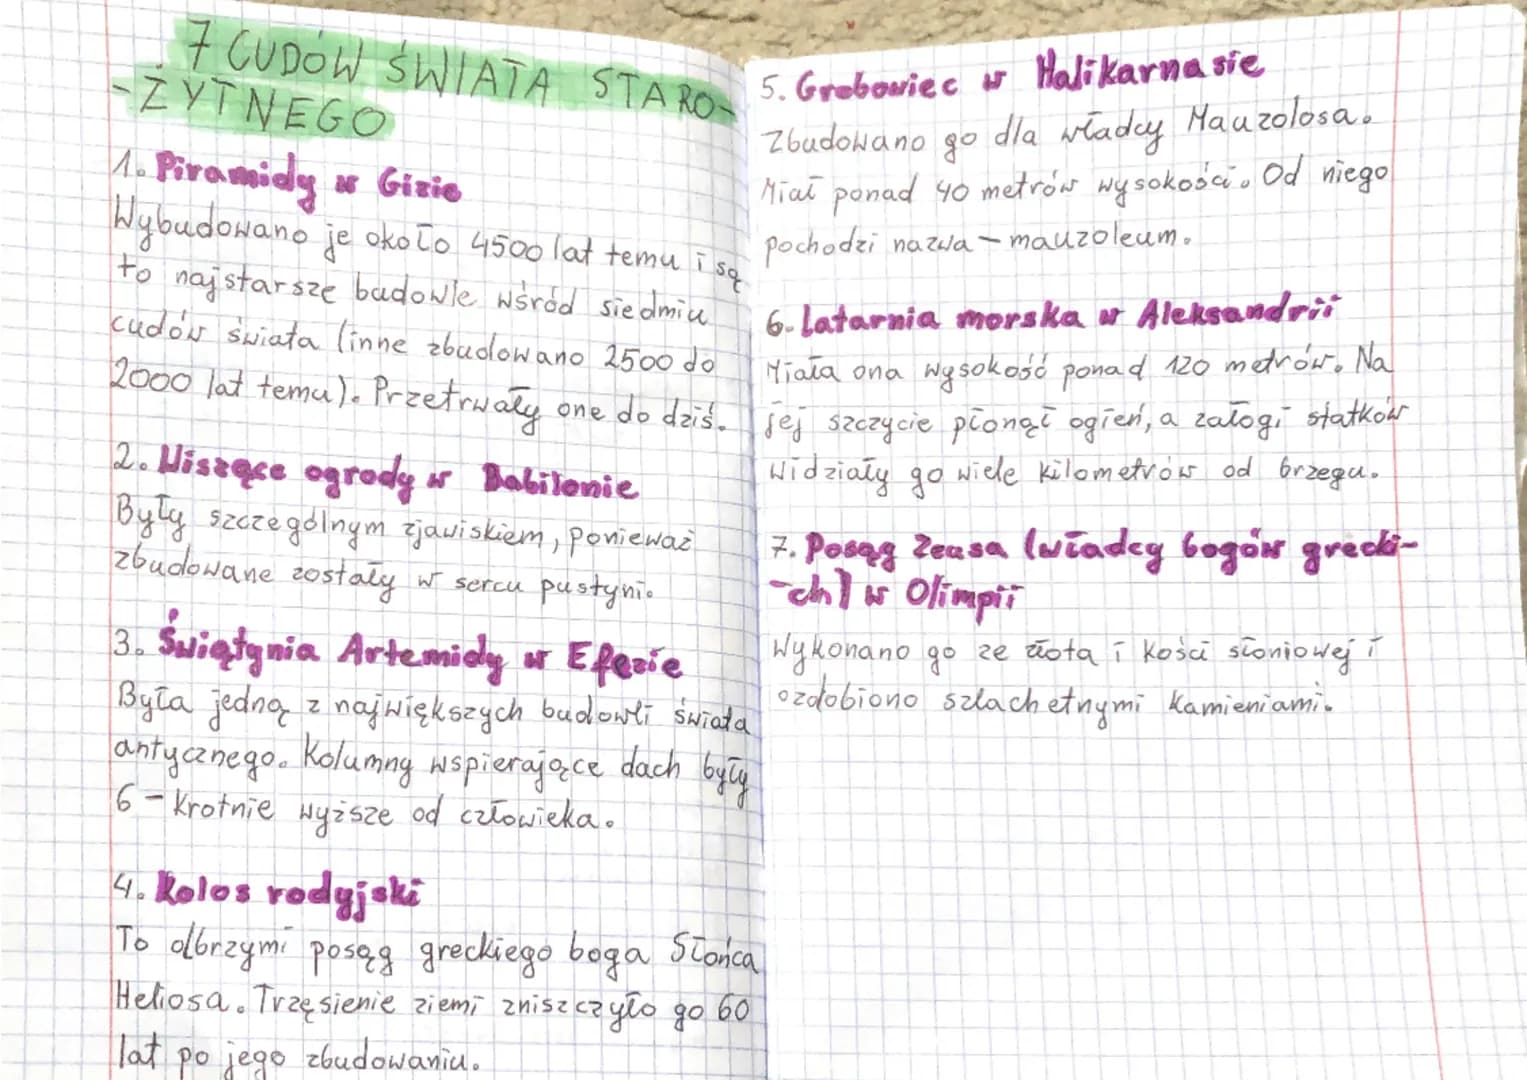 7 CUDÓW ŚWIATA STARO-
-ŻYTNEGO
1. Piramidy w Gizie
Wybudowano je około 4500 lat temu i są
to najstarsze budowle wśród siedmiu
cudów świata (inne zbudowano 2500 do
2000 lat temu). Przetrwały one do dziś.
2. Wiszące ogrody w Babilonie
Były szczególnym zjawiskiem, ponieważ
zbudowane zostały w sercu pustyni.
3. Świątynia Artemidy w Efezie
Była jedną z największych budowli świata
antycznego. Kolumny wspierające dach były
6-krotnie wyższe od człowieka.
4. Kolos rodyjski
To olbrzymi posąg greckiego boga Słońca
Heliosa. Trzęsienie ziemi zniszczyło go 60
lat po jego zbudowaniu.
5. Grobowiec w Halikarnasie
Zbudowano go dla władcy Mauzolosa.
Miał ponad 40 metrów wysokości. Od niego
pochodzi nazwa - mauzoleum.
6. Latarnia morska w Aleksandrii
Miała ona wysokość ponad 120 metrów. Na
jej szczycie płonął ogień, a załogi statków
widziały go wiele kilometrów od brzegu.
7. Posąg Zeusa (władcy bogów grecki-
-ch) w Olimpii
Wykonano go ze złota i kości słoniowej i
ozdobiono szlachetnymi kamieniami.